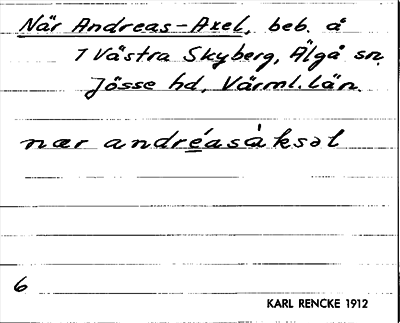 När Andreas-Axel, beb. å
1 Västra Skyberg, Älgå sn.
Jösse hd, Värml. län.
nær andréasàksəl
6
KARL RENCKE 1912